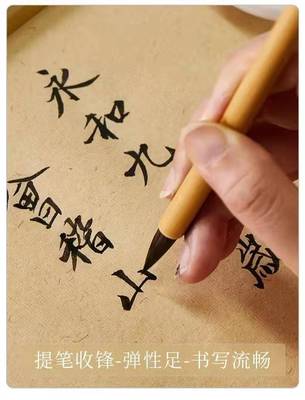 永和九歲
會稽山
提笔收锋-弹性足-书写流畅